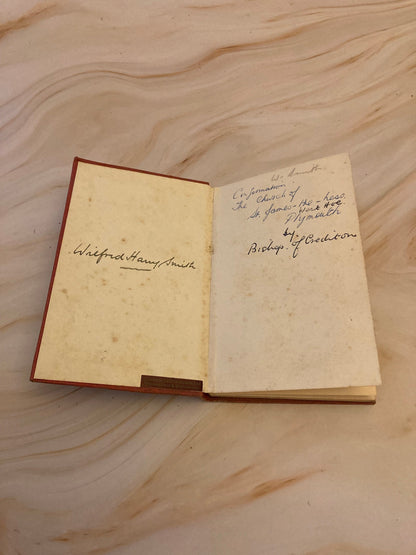 Wilfred Harry Smith
W. Smith
Confirmation
The Church of
St. James-the-less
Plymouth
by
Bishop of Crediton